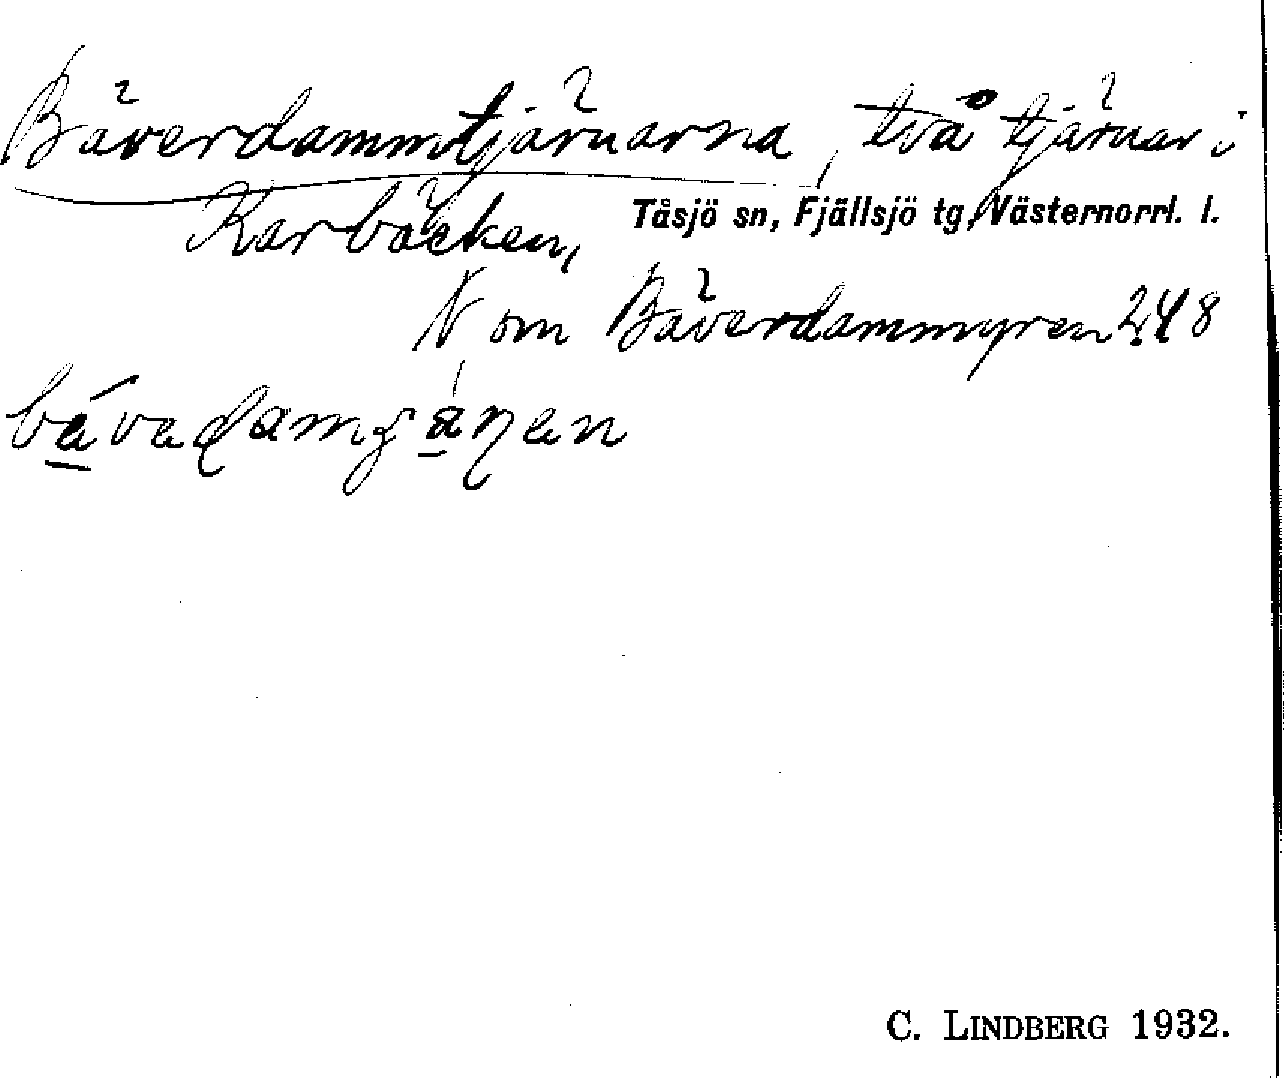 Bäverdammtjärnarna, två tjärnar i
Karbäcken,
Tåsjö sn, Fjällsjö tg, Västernorrl. l.
N om Bäverdammyren 248
C. LINDBERG 1932.